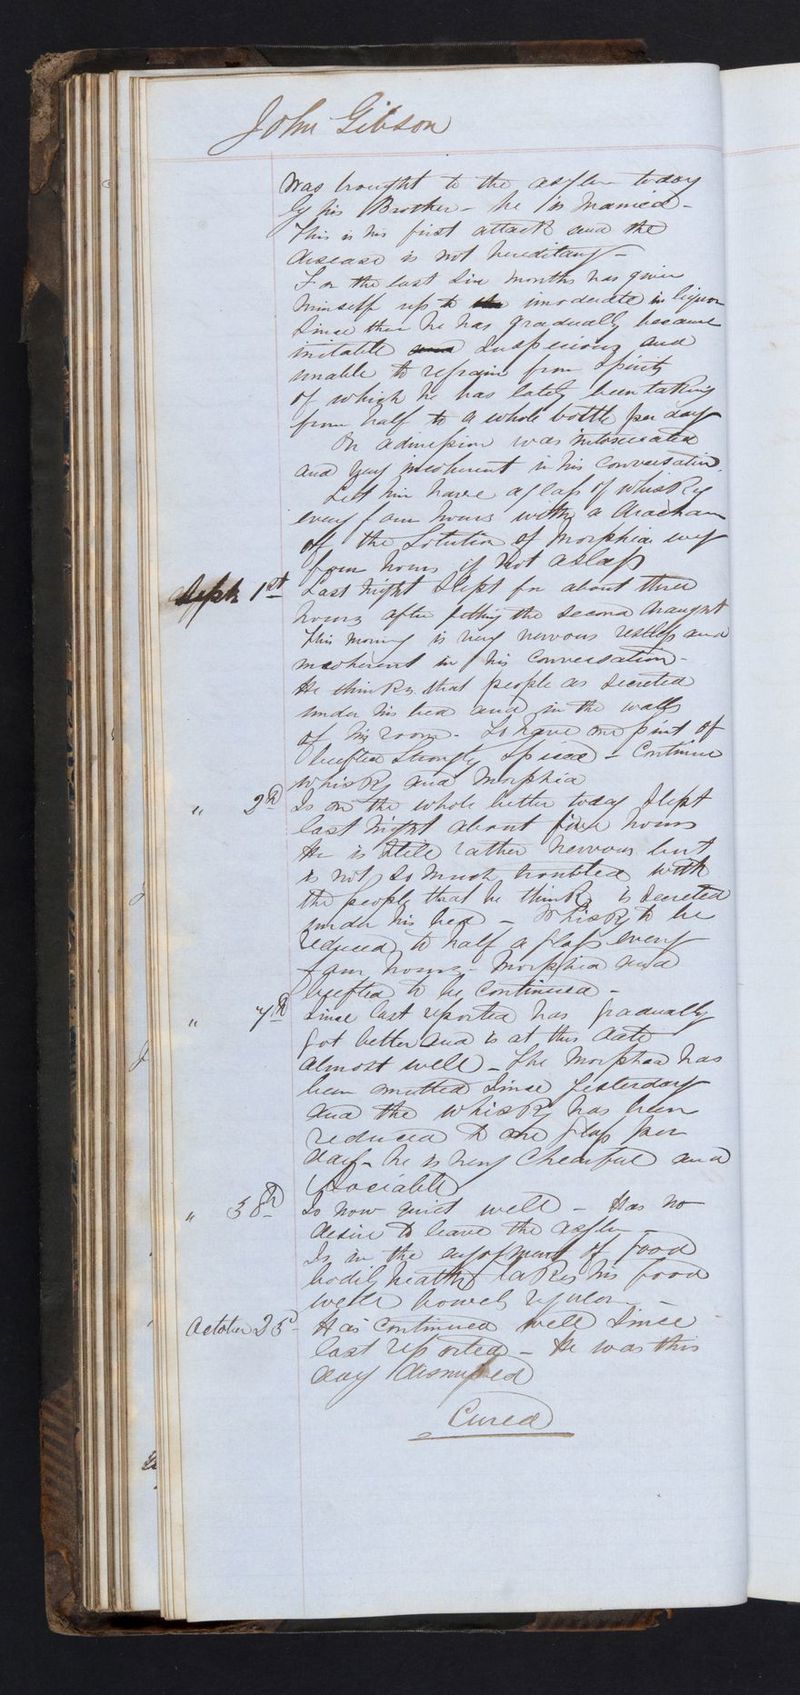 John Gibson
Was brought to the asylum today
by his Brother - he is Married -
This is his first attack and the
disease is not hereditary -
For the last six months has given
himself up to the imoderate in liquor
Since then he has gradually became
irritable and Suspecious and
unable to refrain from Spirits
of which he has lately been taking
from half to a whole bottle per day
On admission was intoxicated
and very incoherent in his conversation.
Let him have a glass of whisky
every four hours with a drachm
of the Solution of Morphia every
four hours if not asleep
Sept. 1st Last night Slept for about three
hours after getting the second draught
This morning is very nervous restless and
incoherent in his conversation -
He thinks that people as secreted
under his bed and in the walls
of his room. To have one pint of
beeftea strongly spiced - Continue
whisky and Morphia
" 2d Is on the whole better today Slept
last night about four hours
He is still rather nervous but
is not so much troubled with
the people that he thinks is secreted
under his bed - Whisky to be
reduced to half a glass every
four hours - Morphia and
beeftea to be continued -
" 7th Since last reported has gradually
got better and is at this date
almost well - The Morphia has
been omitted since yesterday
and the whisky has been
reduced to one glass per
day - he is very Chearful and
Sociable
" 30th Is now quite well - Has no
desire to leave the asylum -
Is in the enjoyment of good
bodily health takes his food
well bowels regular -
October 25 Has continued well since
last reported - He was this
day dismissed
Cured